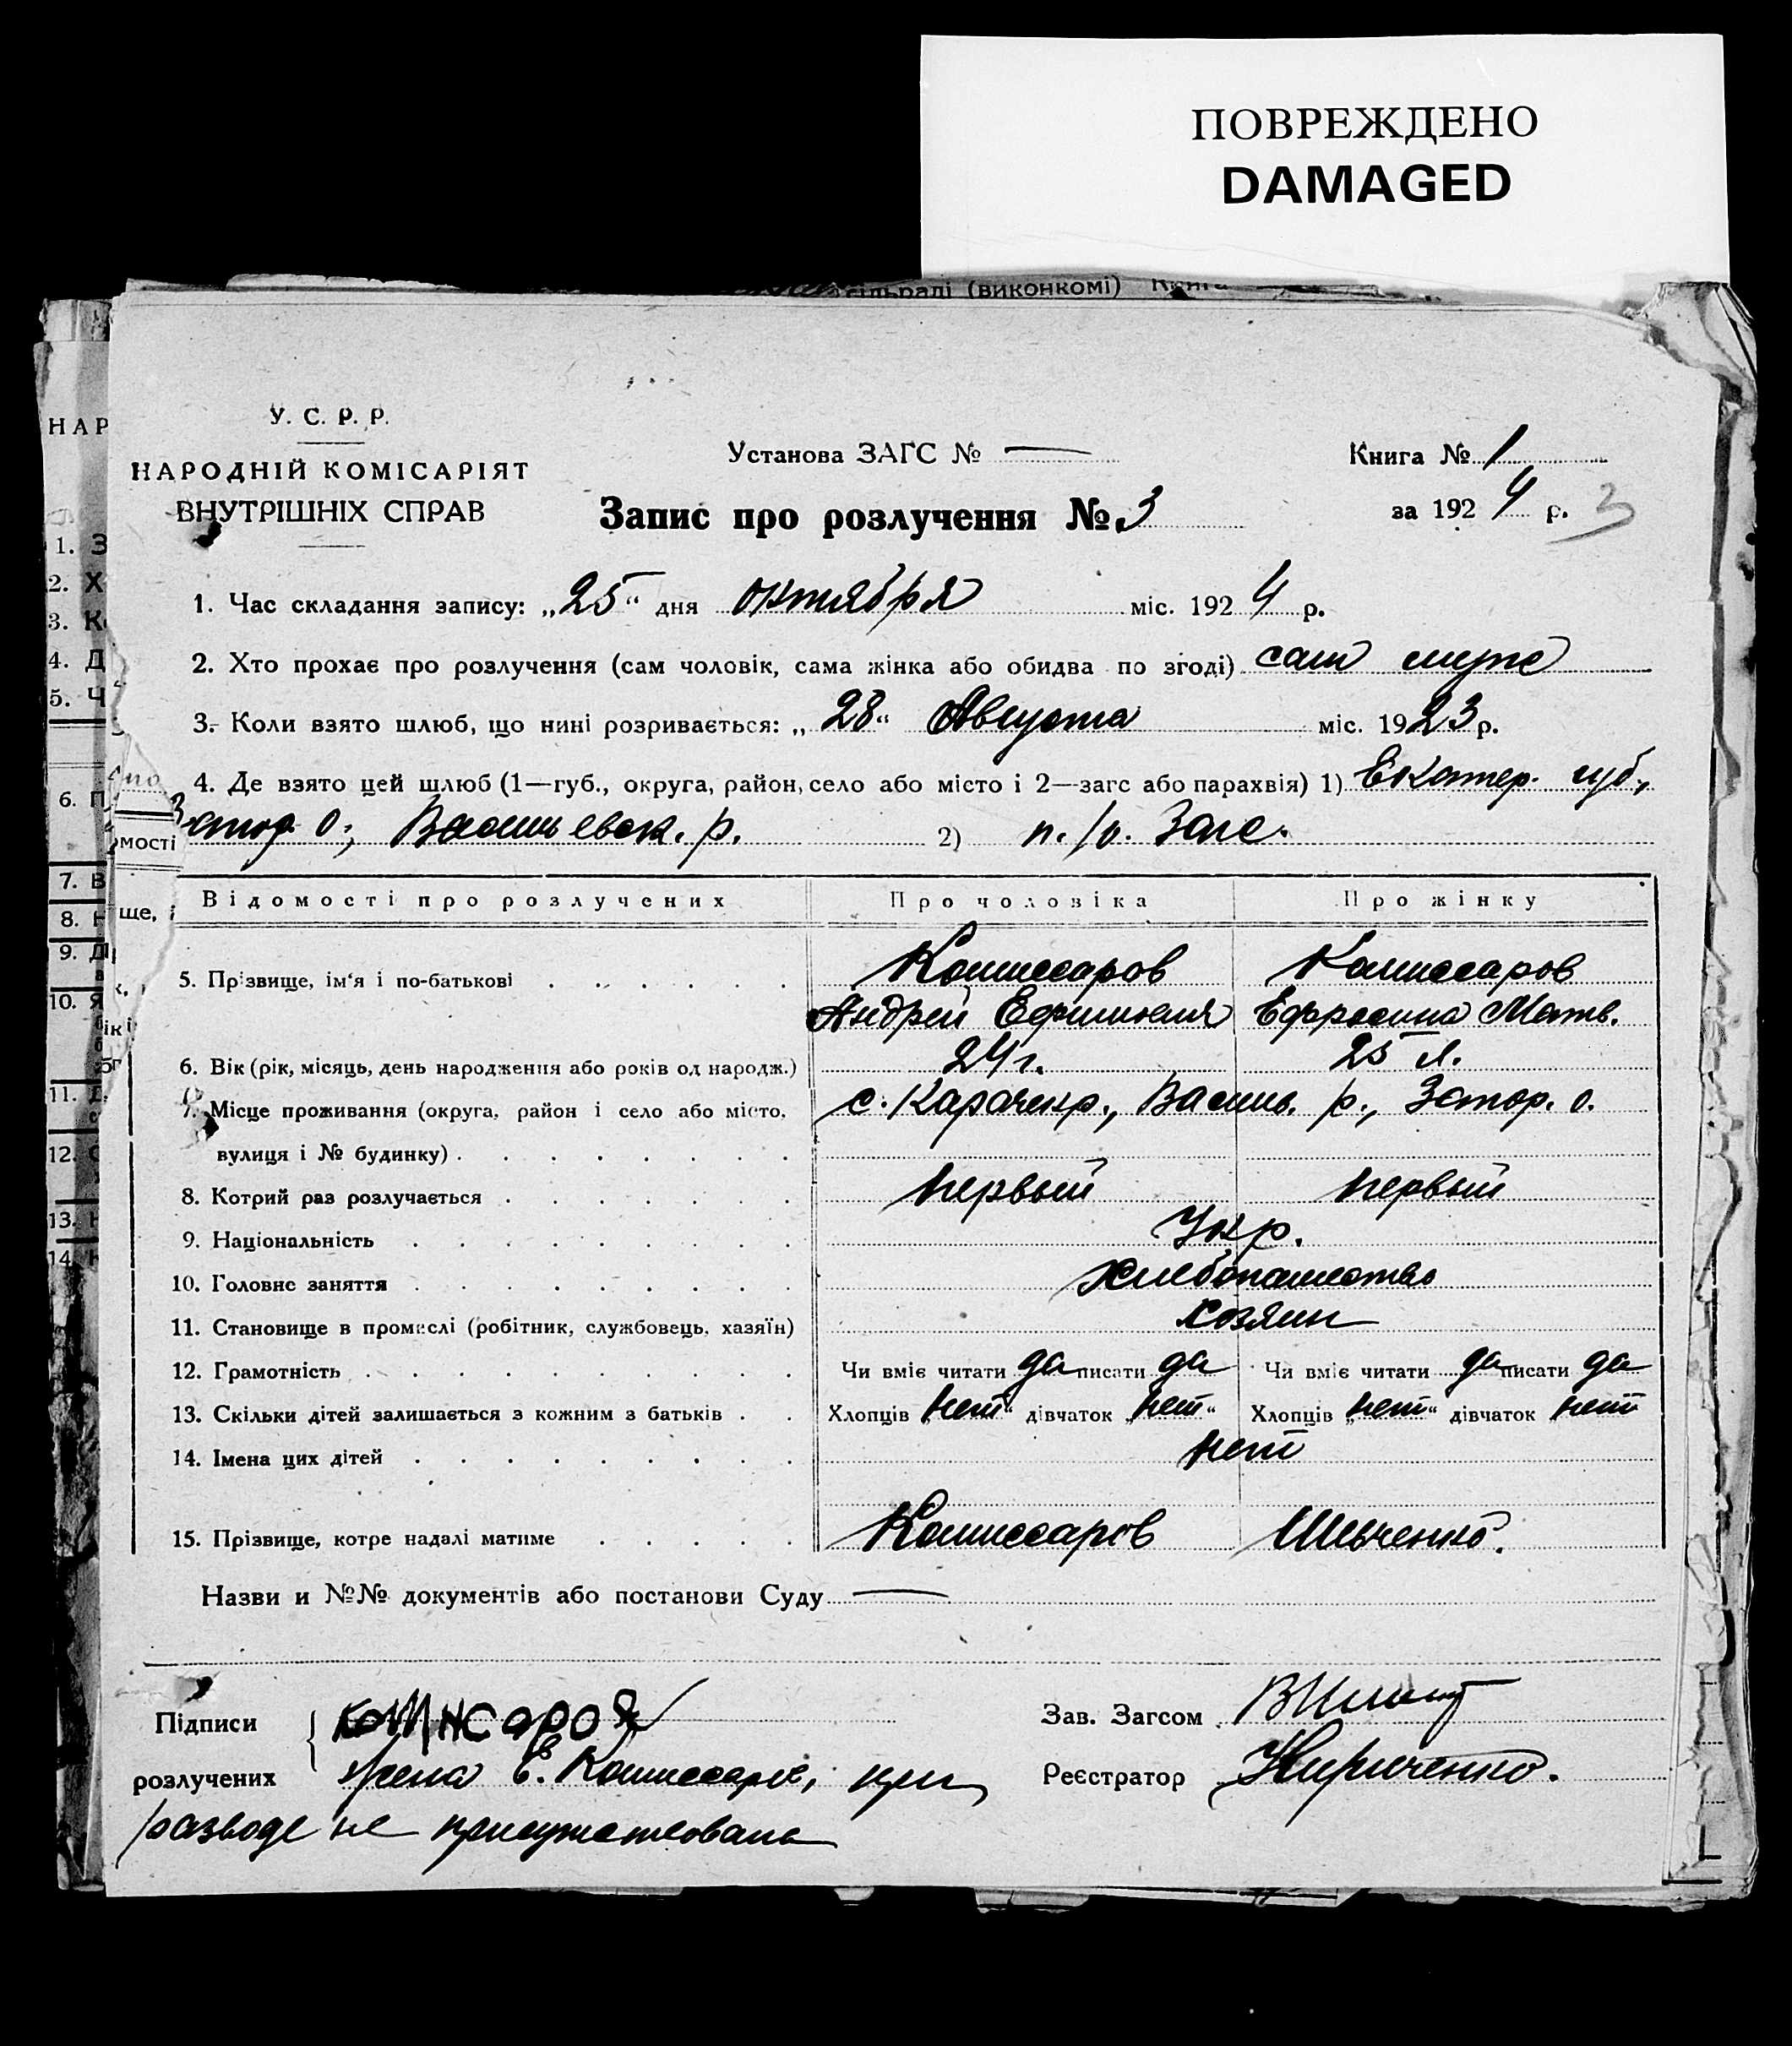 ПОВРЕЖДЕНО
DAMAGED
сільраді (виконкомі) Книга
НАР
1. З
2. Х
3. К
4. Д
5. Ч
6. П
7. В
8. Н
9. Д
10. Я
11. Д
12. С
13. Н
14. Н
мості
ще, і
У. С. Р. Р.
НАРОДНІЙ КОМІСАРІЯТ
ВНУТРІШНІХ СПРАВ
Установа ЗАГС № —
Книга № 1
Запис про розлучення № 3
за 1924 р. 3
1. Час складання запису: „25“ дня октября міс. 1924 р.
2. Хто прохає про розлучення (сам чоловік, сама жінка або обидва по згоді) сам муж
3. Коли взято шлюб, що нині розривається: „28“ Августа міс. 1923 р.
4. Де взято цей шлюб (1—губ., округа, район, село або місто і 2—загс або парахвія) 1) Екатер. губ.,
Запор. о., Васильевск. р. 2) п./о. Загс.
Відомості про розлучених Про чоловіка Про жінку
5. Прізвище, ім'я і по-батькові Комиссаров Комиссаров
Андрей Ефимович Ефросина Матв.
6. Вік (рік, місяць, день народження або років од народж.) 24 г. 25 л.
7. Місце проживання (округа, район і село або місто, с. Карачекр., Васильв. р., Запор. о.
вулиця і № будинку)
8. Котрий раз розлучається первый первый
9. Національність Укр.
10. Головне заняття хлебопашество
11. Становище в промислі (робітник, службовець, хазяїн) хозяин
12. Грамотність Чи вміє читати да писати да Чи вміє читати да писати да
13. Скільки дітей залишається з кожним з батьків Хлопців „нет“ дівчаток „нет“ Хлопців „нет“ дівчаток нет
14. Імена цих дітей нет
15. Прізвище, котре надалі матиме Комиссаров Шевченко.
Назви и №№ документів або постанови Суду —
Підписи комисаров Зав. Загсом
розлучених Жена Е. Комиссаров, при Реєстратор Кириченко.
разводе не присутствовала